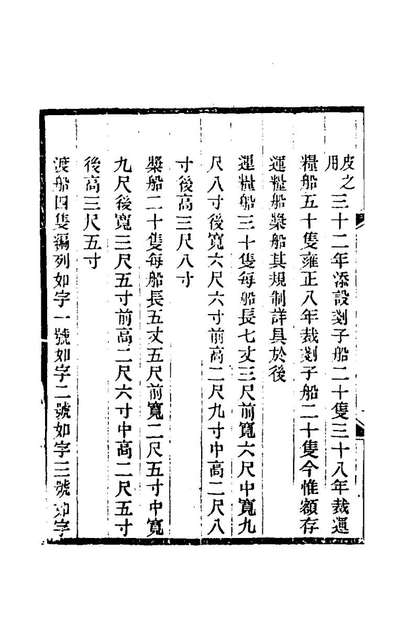 皮之用三十二年添設剗子船二十隻三十八年裁運
糧船五十隻雍正八年裁剗子船二十隻今惟額存
運糧船槳船其規制詳具於後
運糧船三十隻每船長七丈三尺前寬六尺中寬九
尺八寸後寬六尺六寸前高二尺九寸中高二尺八
寸後高三尺八寸
槳船二十隻每船長五丈五尺前寬二尺五寸中寬
九尺後寬三尺五寸前高二尺六寸中高二尺五寸
後高三尺五寸
渡船四隻編列如字一號如字二號如字三號如字